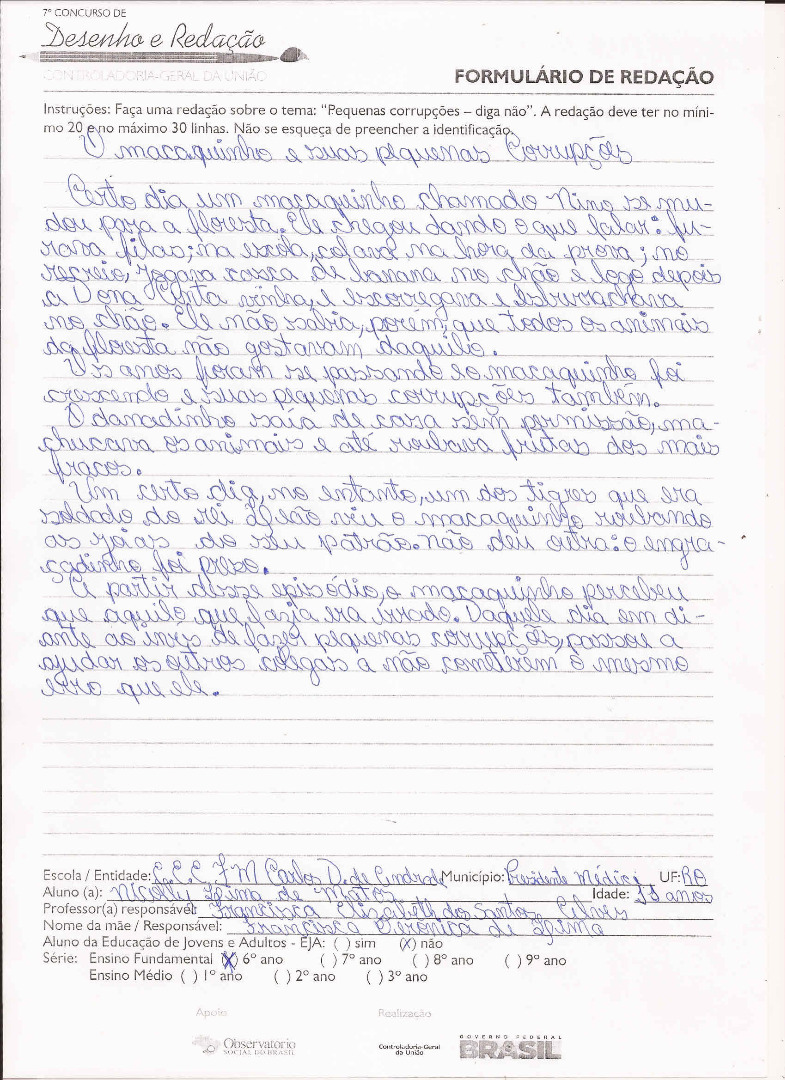 7º CONCURSO DE
Desenho e Redação
CONTROLADORIA-GERAL DA UNIÃO
FORMULÁRIO DE REDAÇÃO
Instruções: Faça uma redação sobre o tema: “Pequenas corrupções – diga não”. A redação deve ter no míni-
mo 20 e no máximo 30 linhas. Não se esqueça de preencher a identificação.
O macaquinho e suas pequenas Corrupções
Certo dia um macaquinho chamado Nino se mu-
dou para a floresta. Ele chegou dando o que falar: fu-
rava filas; na escola, colava na hora da prova; no
recreio, jogava casca de banana no chão e logo depois
a Dona Anta vinha, e escorregava e esburrachava
no chão. Ele não sabia, porém, que todos os animais
da floresta não gostavam daquilo.
Os anos foram se passando e o macaquinho foi
crescendo e suas pequenas corrupções também.
O danadinho saía de casa sem permissão, ma-
chucava os animais e até roubava frutas dos mais
fracos.
Um certo dia, no entanto, um dos tigres que era
soldado do rei Leão viu o macaquinho roubando
as jóias do seu patrão. Não deu outra: o engra-
çadinho foi preso.
A partir desse episódio, o macaquinho percebeu
que aquilo que fazia era errado. Daquele dia em di-
ante ao invés de fazer pequenas corrupções, passou a
ajudar os outros colegas a não cometerem o mesmo
erro que ele.
Escola / Entidade: E.E.E.F.M Carlos D. de Andrade Município: Presidente Médici UF: RO
Aluno (a): Nicolly Lima de Matos Idade: 11 anos
Professor(a) responsável: Francisca Elizabeth dos Santos Alves
Nome da mãe / Responsável: Francisca Verônica de Lima
Aluno da Educação de Jovens e Adultos - EJA: ( ) sim (X) não
Série: Ensino Fundamental (X) 6º ano ( ) 7º ano ( ) 8º ano ( ) 9º ano
Ensino Médio ( ) 1º ano ( ) 2º ano ( ) 3º ano
Apoio Realização
Observatório
SOCIAL DO BRASIL
Controladoria-Geral
da União
GOVERNO FEDERAL
BRASIL